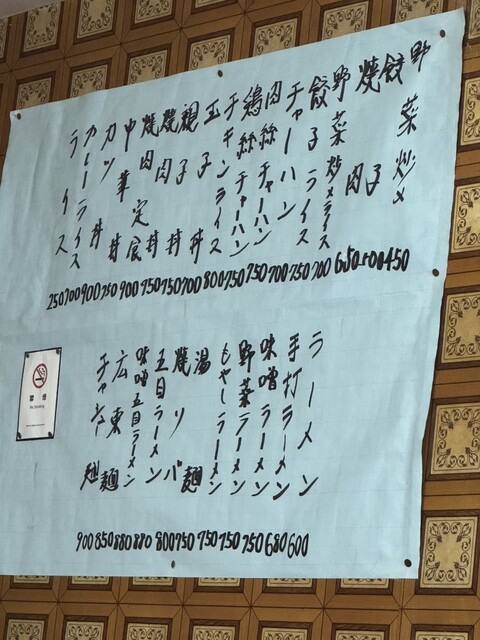 野菜炒メ 450
餃子 500
焼肉 650
野菜炒メライス 700
餃子ライス 750
チャーハン 700
肉絲チャーハン 750
鶏絲チャーハン 750
チキンライス 800
玉子丼 700
親子丼 750
焼肉丼 750
焼肉定食 900
中華丼 750
カツ丼 900
カレーライス 700
ライス 250
ラーメン 600
手打ラーメン 680
味噌ラーメン 750
野菜ラーメン 750
もやしラーメン 750
湯麺 750
焼ソバ 800
五目ラーメン 880
味噌五目ラーメン 880
広東麺 850
チャシュー麺 900
禁煙
No Smoking